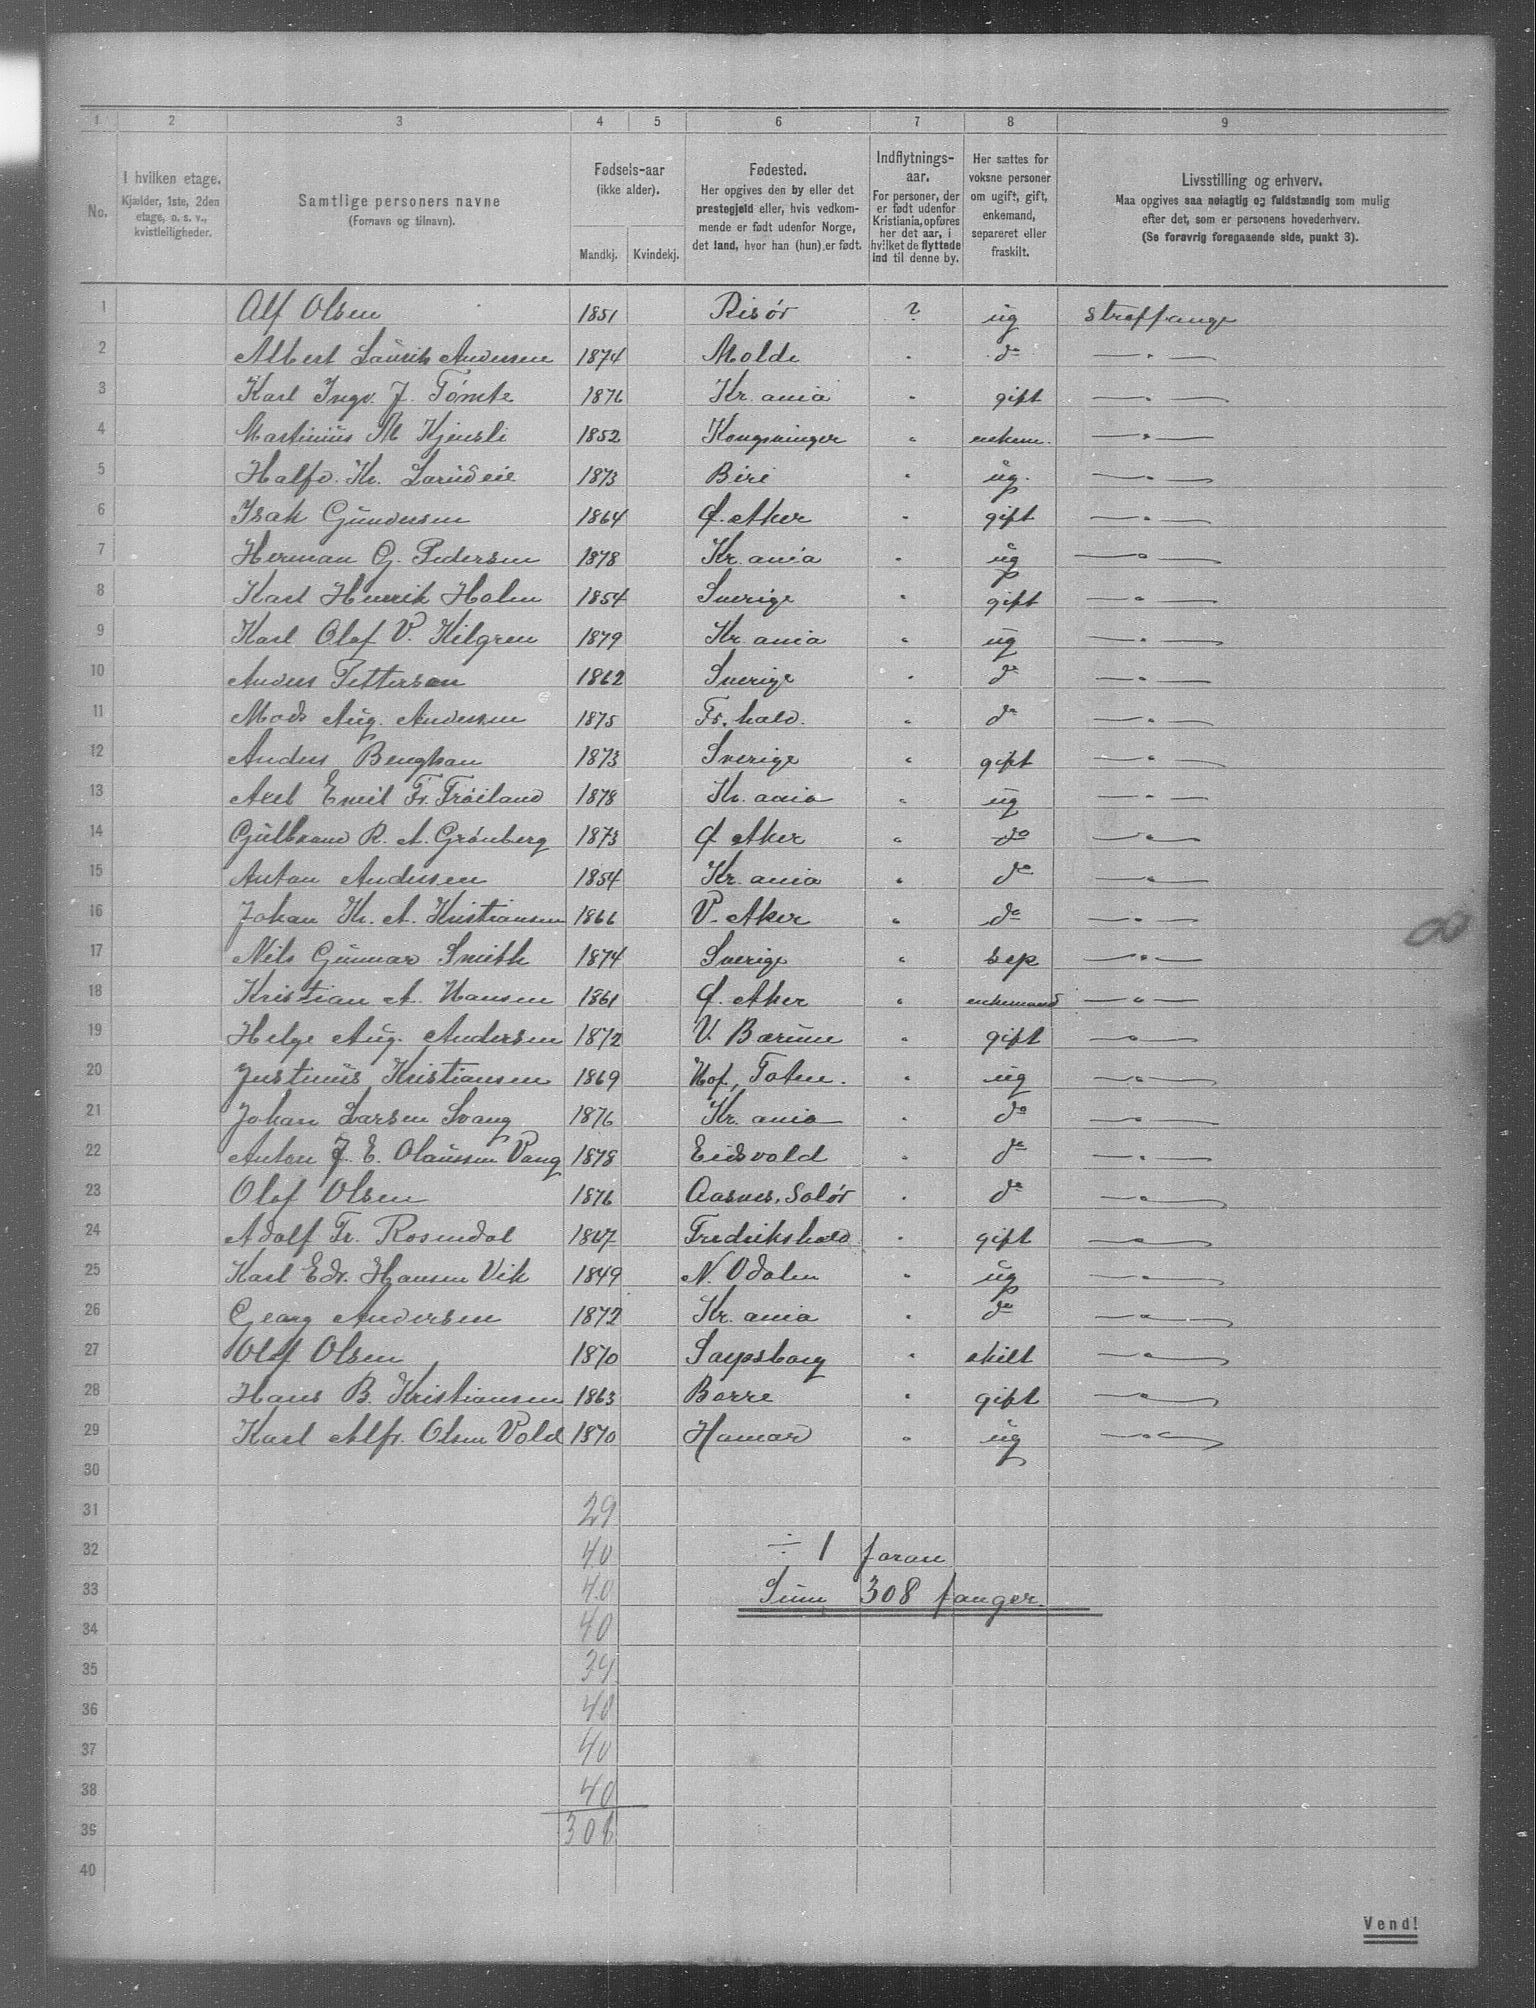 1 2 3 4 5 6 7 8 9
No.
I hvilken etage.
Kjælder, 1ste, 2den
etage, o. s. v.,
kvistleiligheder.
Samtlige personers navne
(Fornavn og tilnavn).
Fødsels-aar
(ikke alder).
Mandkj. Kvindekj.
Fødested.
Her opgives den by eller det
prestegjeld eller, hvis vedkom-
mende er født udenfor Norge,
det land, hvor han (hun) er født.
Indflytnings-
aar.
For personer, der
er født udenfor
Kristiania, opføres
her det aar, i
hvilket de flyttede
ind til denne by.
Her sættes for
voksne personer
om ugift, gift,
enkemand,
separeret eller
fraskilt.
Livsstilling og erhverv.
Maa opgives saa nøiagtig og fuldstændig som mulig
efter det, som er personens hovederhverv.
(Se forøvrig foregaaende side, punkt 3).
1 Alf Olsen 1851 Risør ? ug straffange
2 Albert Laurits Andersen 1874 Molde " do — " —
3 Karl Ingv. J. Tømte 1876 Kr. ania " gift — " —
4 Martinius M Kjensli 1852 Kongsvinger " enkem. — " —
5 Halfd. Kr. 1873 Biri " ug. — " —
6 Isak Gundersen 1864 Ø. Aker " gift — " —
7 Herman G. Pedersen 1878 Kr. ania " ug — " —
8 Karl Henrik Holm 1854 Sverige " gift — " —
9 Karl Olaf V. Kilgren 1879 Kr. ania " ug — " —
10 Anders Petterson 1862 Sverige " do — " —
11 Mads Aug. Andersen 1875 Fr. hald. " do — " —
12 Anders Bengtson 1873 Sverige " gift — " —
13 Axel Emil Fr. Frøiland 1878 Kr. ania " ug — " —
14 Gulbrand R. A. Grønberg 1873 Ø Aker " do — " —
15 Anton Andersen 1854 Kr. ania " do — " —
16 Johan Kr. A. Kristiansen 1866 V. Aker " do — " —
17 Nils Gunnar Smith 1874 Sverige " sep — " —
18 Kristian A. Hansen 1861 Ø. Aker " enkemand — " —
19 Helge Aug. Andersen 1872 V. Bærum " gift — " —
20 Justinus Kristiansen 1869 Hof, Toten. " ug — " —
21 Johan Larsen Svang 1876 Kr. ania " do — " —
22 Anton J. E. Olaussen Vang 1878 Eidsvold " do — " —
23 Olaf Olsen 1876 Aasnes, Solør " do — " —
24 Adolf Fr. Rosendal 1867 Fredrikshald " gift — " —
25 Karl Edv. Hansen Vik 1849 N. Odalen " ug — " —
26 Georg Andersen 1872 Kr. ania " do — " —
27 Olaf Olsen 1870 Sarpsborg " skilt — " —
28 Hans B. Kristiansen 1863 Borre " gift — " —
29 Karl Alfr. Olsen Vold 1870 Hamar " ug — " —
30
31 29
32 40 ÷ 1 foran
33 40 Sum 308 fanger.
34 40
35 39
36 40
37 40
38 40
39 308
40
Vend!